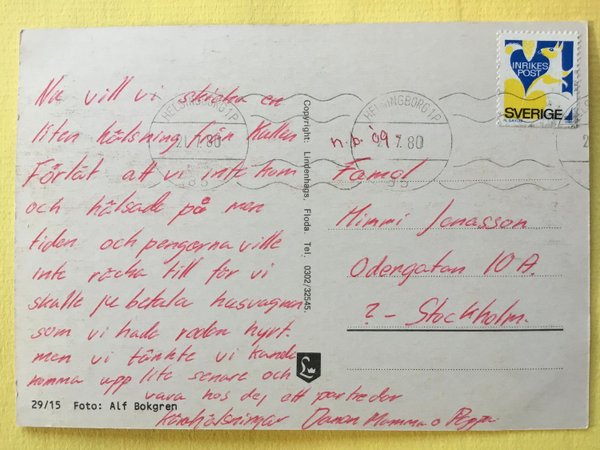 Nu vill vi skicka en
liten hälsning från Kullen
Förlåt att vi inte kom
och hälsade på men
tiden och pengarna ville
inte räcka till för vi
skulle ju betala husvagnen
som vi hade redan hyrt.
men vi tänkte vi kunde
komma upp lite senare och
vara hos dej ett par dar
Kära hälsningar Mamma o Pappa
29/15 Foto: Alf Bokgren
Copyright: Lindenhags, Floda. Tel. 0302/32545.
L
HELSINGBORG 1 P
7. 80
95
HELSINGBORG 1 P
7. 80
95
2
INRIKES
POST
SVERIGE
n.b. 09
Famol
Mimmi Jonasson
Odengatan 10 A.
? - Stockholm.